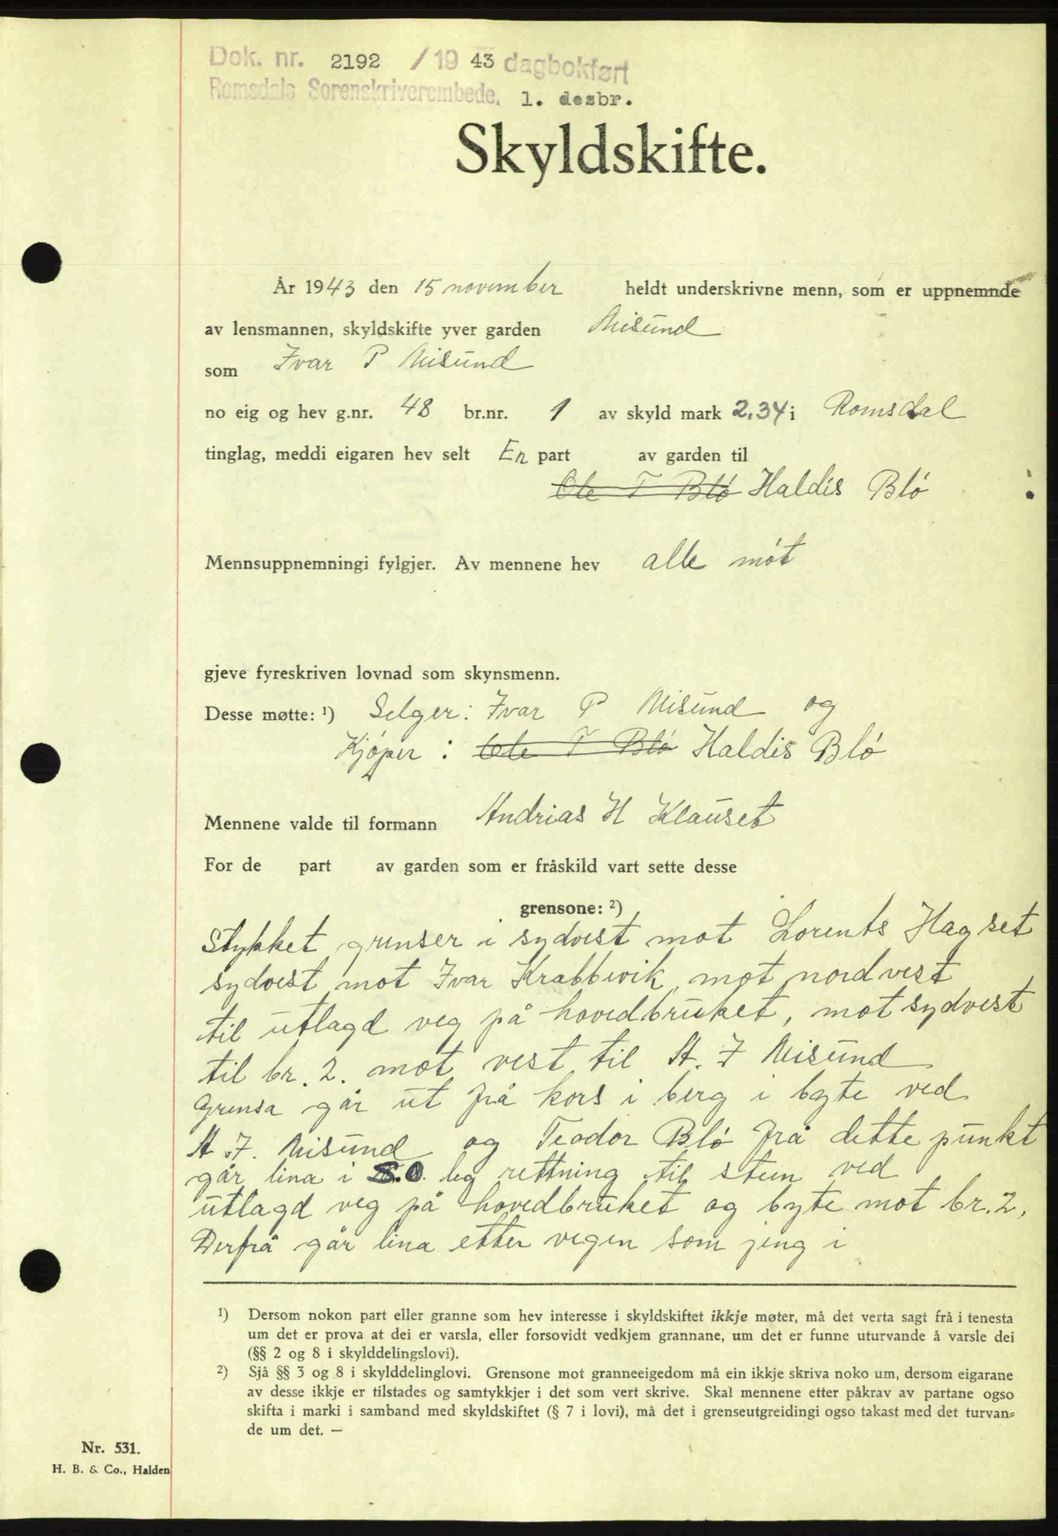 Dok. nr. 2192 /19 43 dagbokført
Romsdals Sorenskriverembede. 1. desbr.
Skyldskifte.
År 1943 den 15 november heldt underskrivne menn, som er uppnemnde
av lensmannen, skyldskifte yver garden Misund
som Ivar P Misund
no eig og hev g.nr. 48 br.nr. 1 av skyld mark 2,34 i Romsdal
tinglag, meddi eigaren hev selt En part av garden til
Ole T Blø Haldis Blø
Mennsuppnemningi fylgjer. Av mennene hev alle møt
gjeve fyreskriven lovnad som skynsmenn.
Desse møtte: ¹) Selger: Ivar P Misund og
Kjøper : Ole T Blø Haldis Blø
Mennene valde til formann Andrias H Klauset
For de part av garden som er fråskild vart sette desse
grensone: ²)
Stykket grenser i sydvest mot Lorents Hagset
sydvest mot Ivar Krabbevik mot nordvest
til utlagd veg på hovedbruket, mot sydvest
til br. 2. mot vest til A. F Misund
Grensa går ut frå kors i berg i byte ved
A F. Misund og Teodor Blø frå dette punkt
går lina i S.O. leg rettning til sten ved
utlagd veg på hovedbruket og byte mot br. 2,
Derfrå går lina etter vegen som jeng i
¹) Dersom nokon part eller granne som hev interesse i skyldskiftet ikkje møter, må det verta sagt frå i tenesta
um det er prova at dei er varsla, eller forsovidt vedkjem grannane, um det er funne uturvande å varsle dei
(§§ 2 og 8 i skylddelingslovi).
²) Sjå §§ 3 og 8 i skylddelinglovi. Grensone mot granneeigedom må ein ikkje skriva noko um, dersom eigarane
av desse ikkje er tilstades og samtykkjer i det som vert skrive. Skal mennene etter påkrav av partane ogso
skifta i marki i samband med skyldskiftet (§ 7 i lovi), må det i grenseutgreidingi ogso takast med det turvan=
de um det. —
Nr. 531.
H. B. & Co., Halden